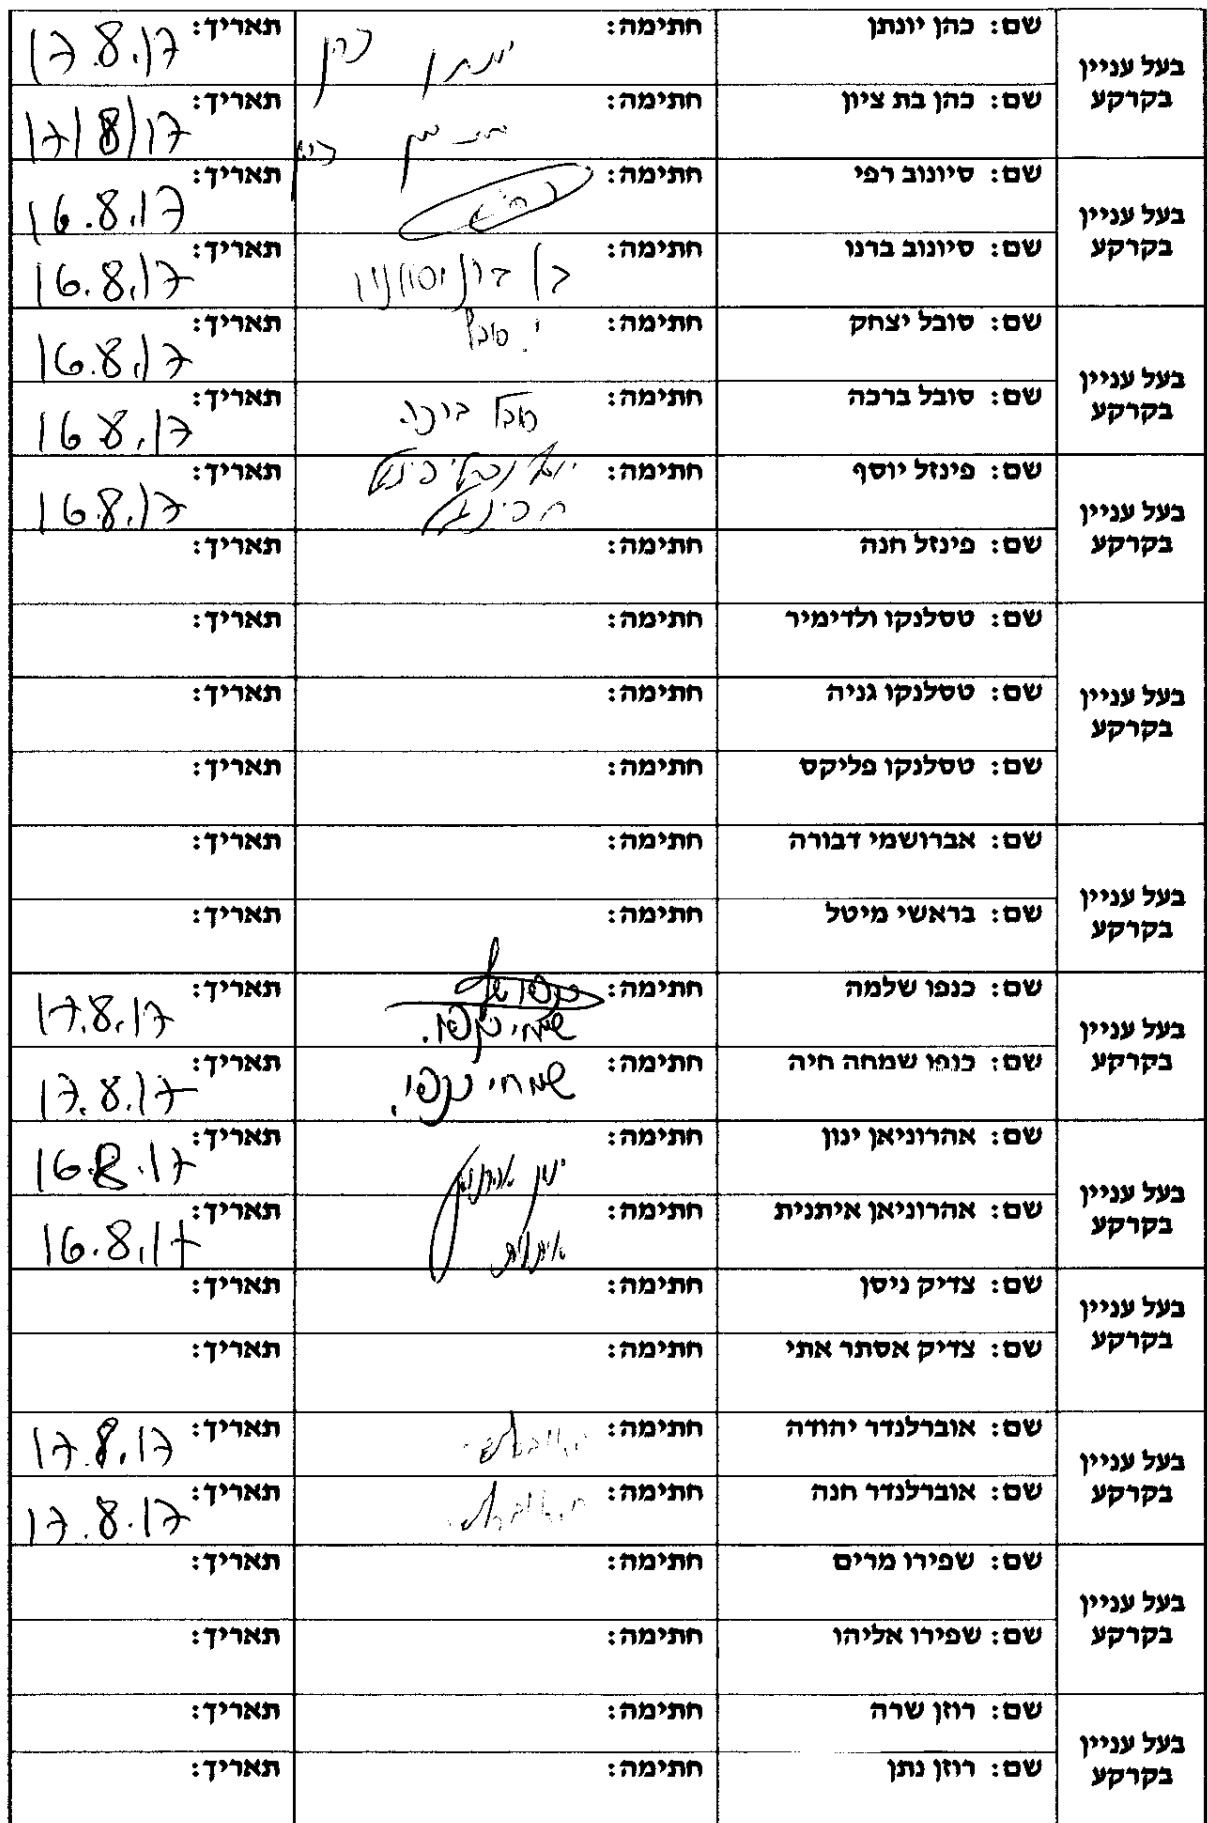 בעל עניין בקרקע
שם: כהן יונתן חתימה: יונתן כהן תאריך: 17.8.17
שם: כהן בת ציון חתימה: תאריך: 17/8/17
בעל עניין בקרקע
שם: סיונוב רפי חתימה: תאריך: 16.8.17
שם: סיונוב ברנו חתימה: תאריך: 16.8.17
בעל עניין בקרקע
שם: סובל יצחק חתימה: י. סובל תאריך: 16.8.17
שם: סובל ברכה חתימה: סובל ברכה תאריך: 16.8.17
בעל עניין בקרקע
שם: פינזל יוסף חתימה: תאריך: 16.8.17
שם: פינזל חנה חתימה: תאריך:
בעל עניין בקרקע
שם: טסלנקו ולדימיר חתימה: תאריך:
שם: טסלנקו גניה חתימה: תאריך:
שם: טסלנקו פליקס חתימה: תאריך:
בעל עניין בקרקע
שם: אברושמי דבורה חתימה: תאריך:
שם: בראשי מיטל חתימה: תאריך:
בעל עניין בקרקע
שם: כנפו שלמה חתימה: תאריך: 17.8.17
שם: כנפו שמחה חיה חתימה: תאריך: 17.8.17
בעל עניין בקרקע
שם: אהרוניאן ינון חתימה: תאריך: 16.8.17
שם: אהרוניאן איתנית חתימה: איתנית תאריך: 16.8.17
בעל עניין בקרקע
שם: צדיק ניסן חתימה: תאריך:
שם: צדיק אסתר אתי חתימה: תאריך:
בעל עניין בקרקע
שם: אוברלנדר יהודה חתימה: תאריך: 17.8.17
שם: אוברלנדר חנה חתימה: תאריך: 17.8.17
בעל עניין בקרקע
שם: שפירו מרים חתימה: תאריך:
שם: שפירו אליהו חתימה: תאריך:
בעל עניין בקרקע
שם: רוזן שרה חתימה: תאריך:
שם: רוזן נתן חתימה: תאריך: